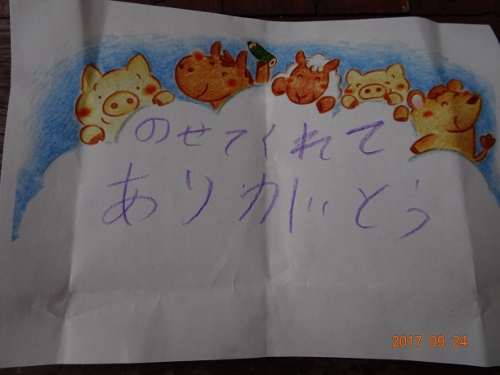 のせてくれて
ありがとう
2017 09 24